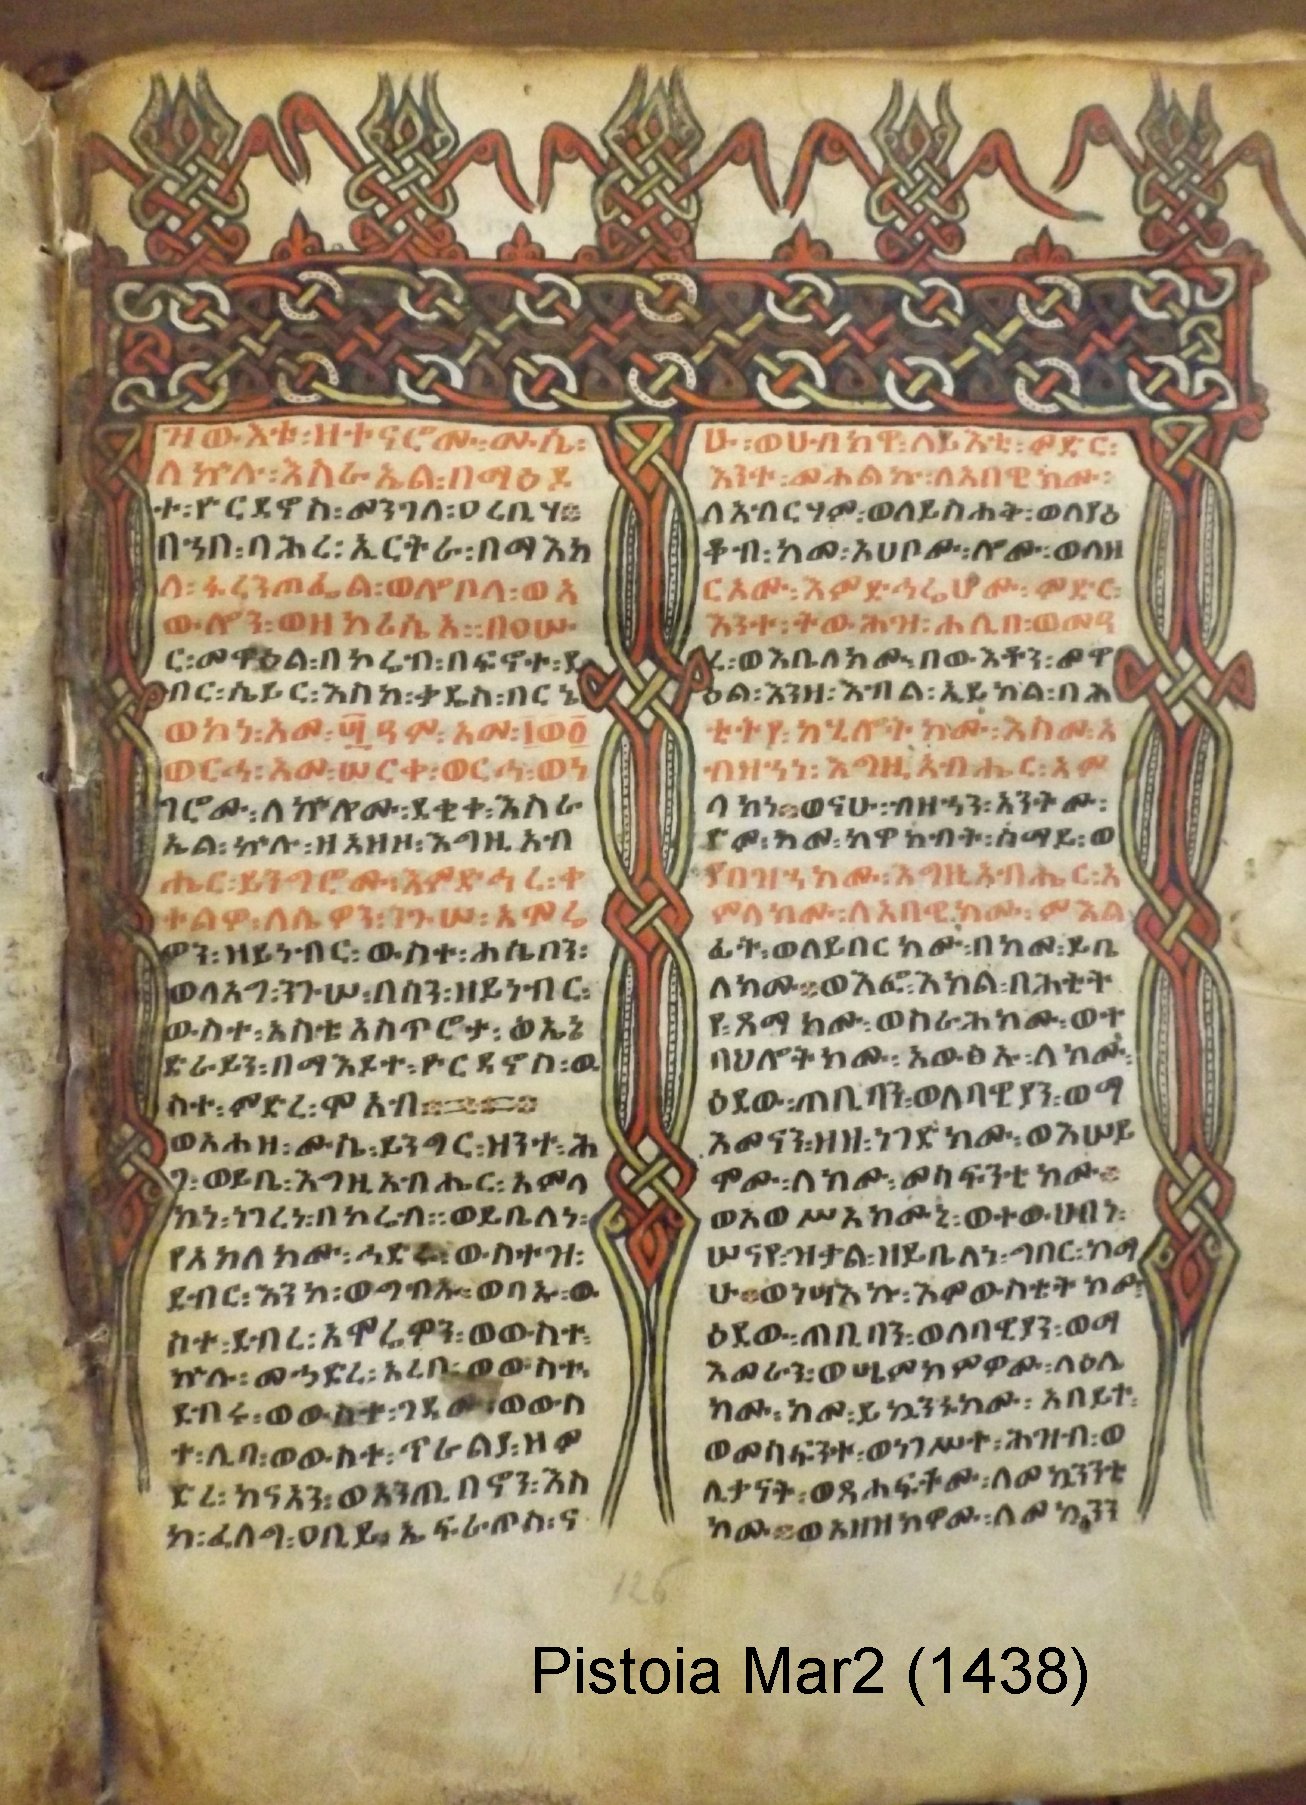 ዝውእቱ፡ዘተናገሮሙ፡ሙሴ፡
ለኵሉ፡እስራኤል፡በማዕደ
ተ፡ዮርዳኖስ፡መንገለ፡ዐረቢሃ፡
በኀበ፡ባሕረ፡ኢርትራ፡በማእከ
ለ፡ፋረንጦፌል፡ወሎቦለ፡ወአ
ውሎን፡ወዘኮሪሴአ፡፡በዐሡ
ር፡መዋዕል፡በኮሬብ፡በፍኖተ፡ደ
ብር፡ሴይር፡እስከ፡ቃዴስ፡በርኔ
ወኮነ፡አመ፡፵ዓም፡አመ፡፲ወ፩
ወርኅ፡አመ፡ሠርቀ፡ወርኅ፡ወነ
ገሮሙ፡ለኵሎሙ፡ደቂቀ፡እስራ
ኤል፡ኵሉ፡ዘአዘዞ፡እግዚአብ
ሔር፡ይንግሮሙ፡እምድኅረ፡ቀ
ተልዎ፡ለሴዎን፡ንጉሠ፡አሞሬ
ዎን፡ዘይነብር፡ውስተ፡ሐሴቦን፡
ወለአግ፡ንጉሠ፡በስን፡ዘይነብር፡
ውስተ፡አስቴ አስጥሮታ፡ወኤኔ
ድራይን፡በማእዶተ፡ዮርዳኖስ፡ው
ስተ፡ምድረ፡ሞአብ፡
ወአሐዘ፡ሙሴ፡ይንግር፡ዝንተ፡ሕ
ገ፡ወይቤ፡እግዚአብሔር፡አምላ
ክነ፡ነገረነ፡በኮሬብ፡፡ወይቤለነ፡
የአክለክሙ፡ኀድረ፡ውስተዝ፡
ደብር፡እንከ፡ወግብኡ፡ወባኡ፡ው
ስተ፡ደብረ፡አሞሬዎን፡ወውስተ፡
ኵሉ፡መኅደረ፡አረባ፡ወውስተ፡
ደብሩ፡ወውስተ፡ገዳሙ፡ወውስ
ተ፡ሊባ፡ወውስተ፡ጥራልያ፡ዘም
ድረ፡ከናአን፡ወአንጢበኖን፡እስ
ከ፡ፈለግ፡ዐቢይ፡ኤፍራጦስ፡ና
ሁ፡ወሀብክዋ፡ለይእቲ፡ምድር፡
እንተ፡መሐልኩ፡ለአበዊክሙ፡
ለአብርሃም፡ወለይስሐቅ፡ወለያዕ
ቆብ፡ከመ፡አሀቦሙ፡ሎሙ፡ወለዘ
ርእሙ፡እምድኅሬሆሙ፡ምድር፡
እንተ፡ትውሕዝ፡ሐሊበ፡ወመዓ
ረ፡ወእቤለክሙ፡በውእቶን፡መዋ
ዕል፡እንዘ፡እብል፡ኢይክል፡በሕ
ቲትየ፡ከሂሎትክሙ፡እስመ፡አ
ብዝኀነ፡እግዚአብሔር፡አም
ላክነ፡ወናሁ፡ብዙኃን፡አንትሙ፡
ዮም፡ከመ፡ከዋክብት፡ሰማይ፡ወ
ያበዝኀክሙ፡እግዚአብሔር፡አ
ምላክሙ፡ለአበዊክሙ፡ምእል
ፊት፡ወለይበርክሙ፡በከመ፡ይቤ
ለክሙ፡ወእፎ፡እክል፡በሕቲት
የ፡ጻማክሙ፡ወስራሕክሙ፡ወተ
ባህሎትክሙ፡አውፅኡ፡ለክሙ፡
ዕደው፡ጠቢባን፡ወለባዊያን፡ወማ
እመናን፡ዘዘ፡ነገድክሙ፡ወእሠይ
ሞሙ፡ለክሙ፡መሳፍንቲክሙ፡
ወአወሥአክሙኒ፡ወተውህበነ፡
ሠናየ፡ዝቃል፡ዘይቤለነ፡ግበር፡ከማ
ሁ፡ወነሣእኩ፡እምውስቴትክሙ፡
ዕደው፡ጠቢባን፡ወለባዊያን፡ወማ
እመራን፡ወሤምክምዎሙ፡ለዕሌ
ክሙ፡ከመ፡ይኴንኑክሙ፡አበይተ፡
ወመስፍንተ፡ወነገሥተ፡ሕዝብ፡ወ
ሊቃናት፡ወጸሐፍትሙ፡ለመኳንንቲ
ክሙ፡ወአዘዝክዎሙ፡ለመኳንን
126
Pistoia Mar2 (1438)